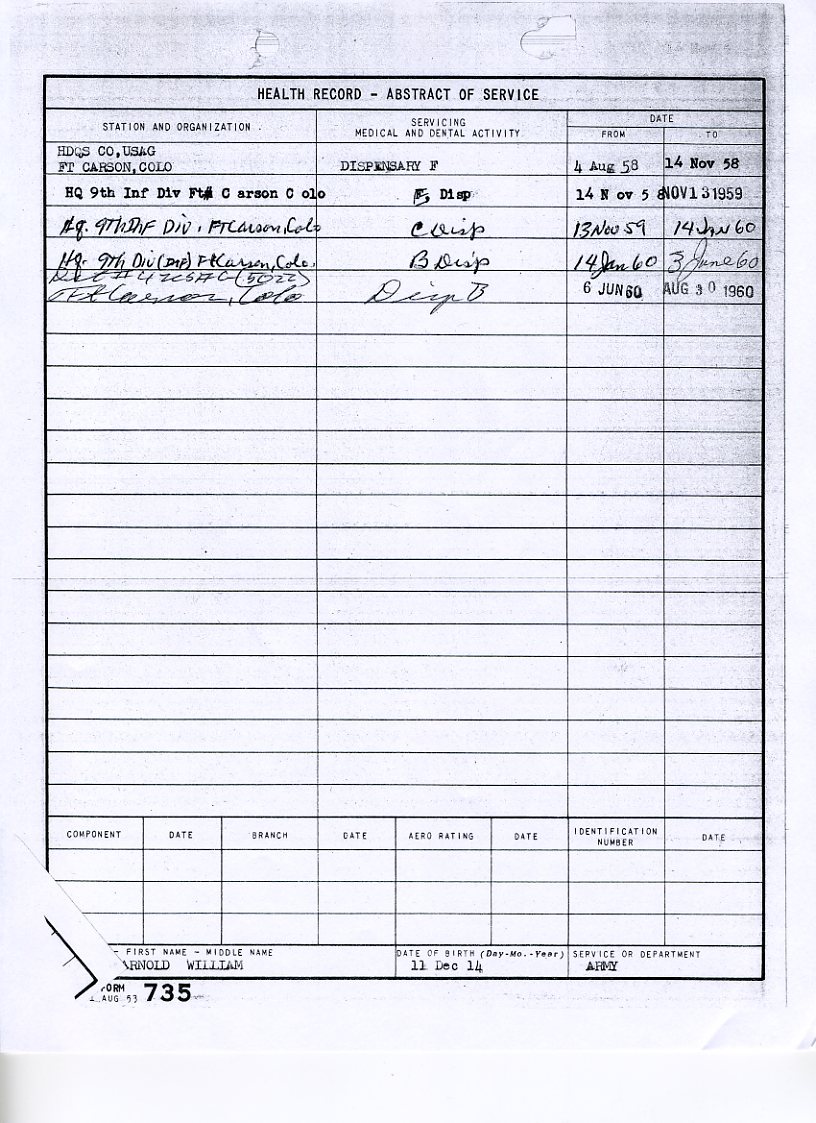 HEALTH RECORD - ABSTRACT OF SERVICE
STATION AND ORGANIZATION
SERVICING
MEDICAL AND DENTAL ACTIVITY
DATE
FROM
TO
HDQS CO, USAG
FT CARSON, COLO
DISPENSARY F
4 Aug 58
14 Nov 58
HQ 9th Inf Div Ft C arson C olo
F, Disp
14 N ov 5 8
NOV 13 1959
Hq. 9TH INF DIV, FT Carson, Colo
C Disp
13 Nov 59
14 Jan 60
Hq. 9Th Div (INF) Ft Carson, Colo.
B Disp
14 Jan 60
3 June 60
(5022)
Ft Carson, Colo
Disp B
6 JUN 60
AUG 30 1960
COMPONENT
DATE
BRANCH
DATE
AERO RATING
DATE
IDENTIFICATION
NUMBER
DATE
- FIRST NAME - MIDDLE NAME
ARNOLD WILLIAM
DATE OF BIRTH (Day-Mo.-Year)
11 Dec 14
SERVICE OR DEPARTMENT
ARMY
FORM
AUG 53 735